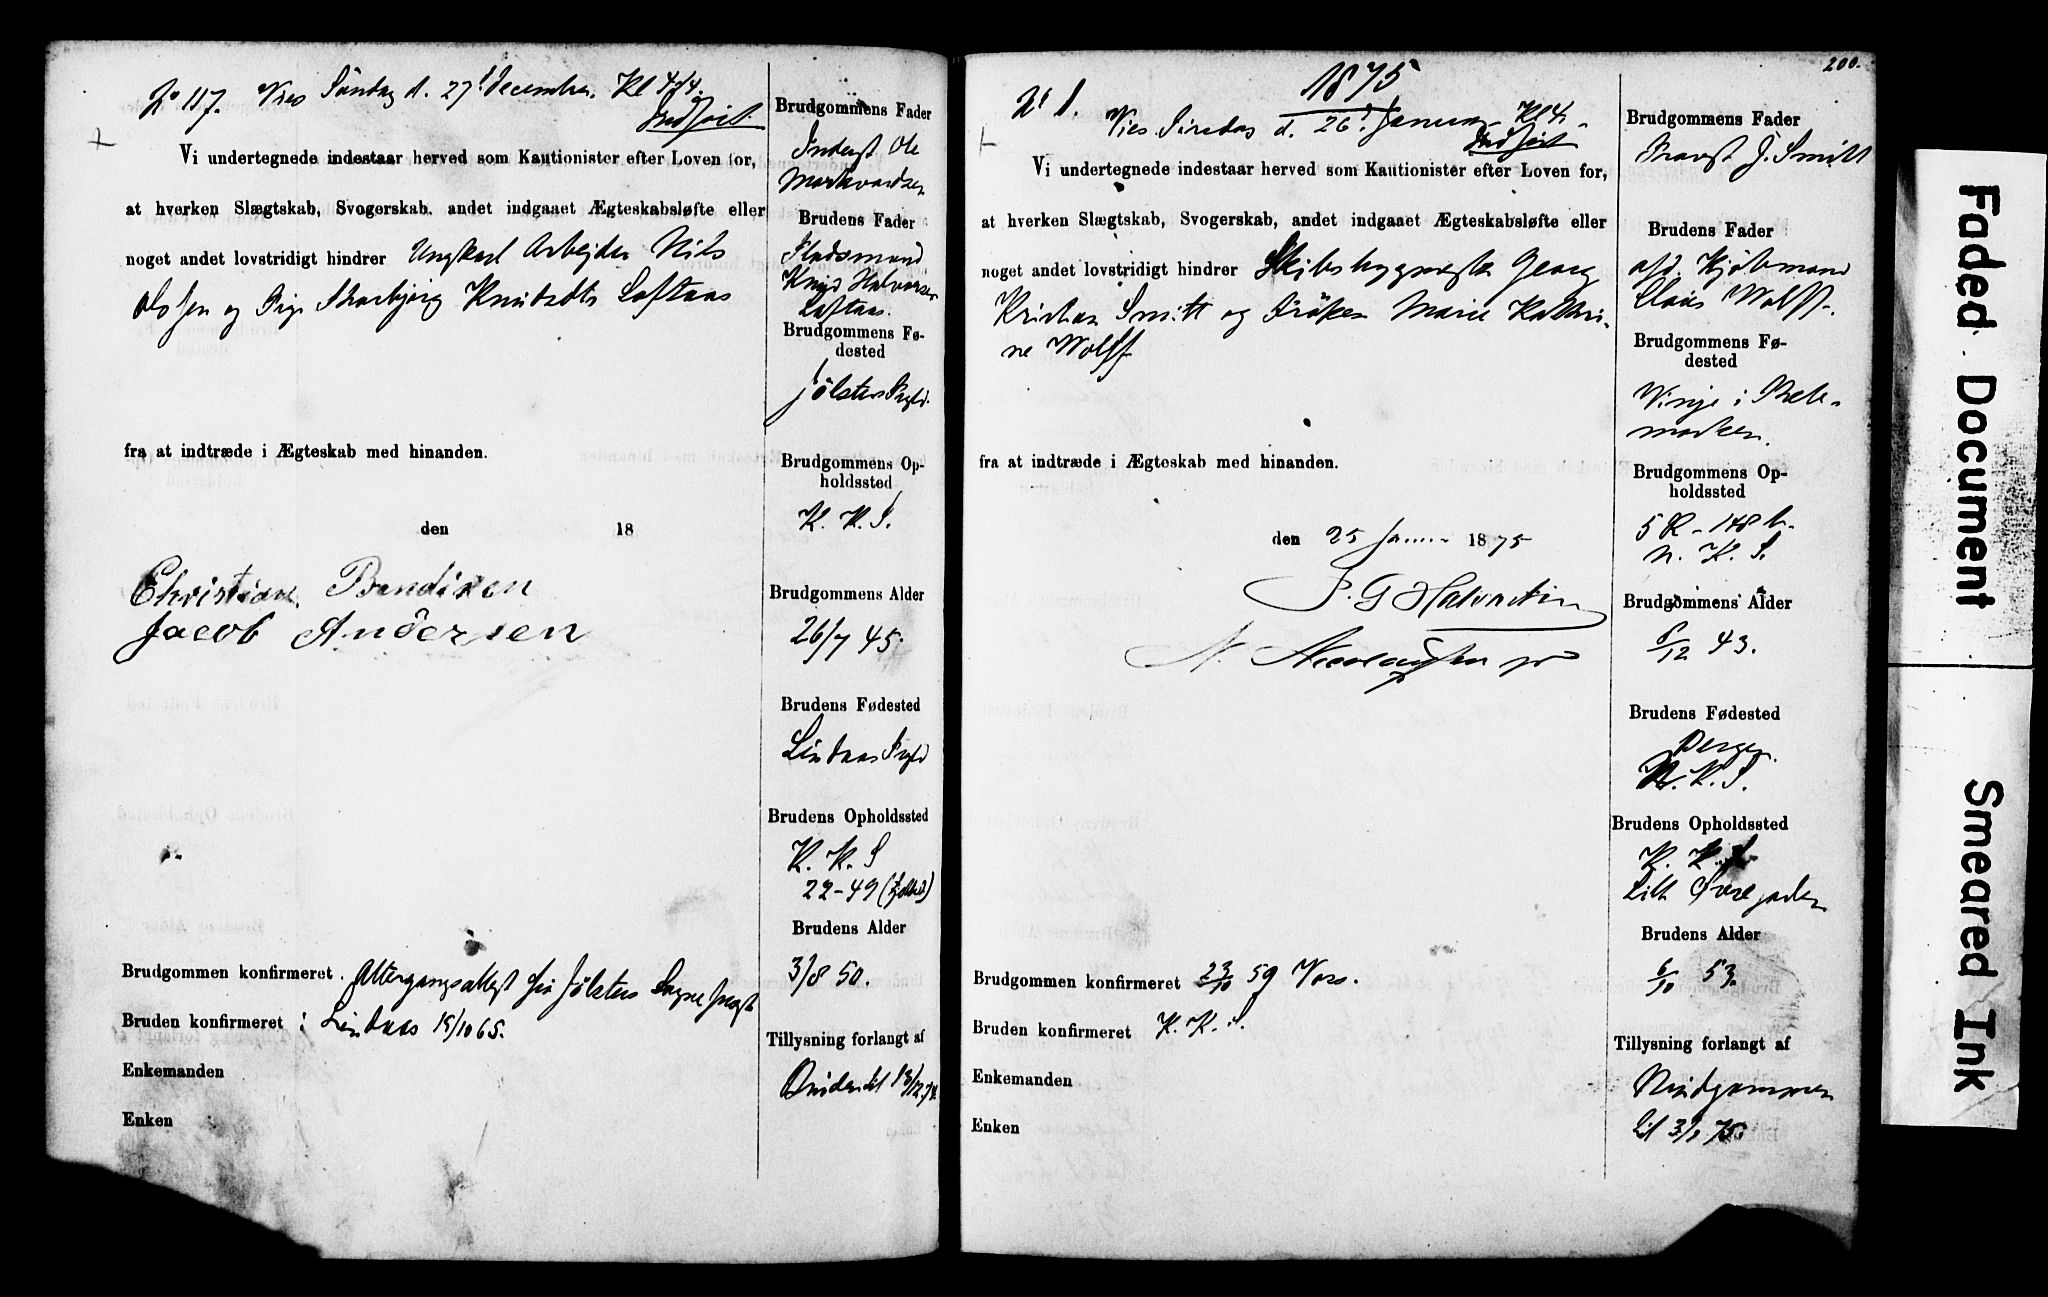 No 117. Vies Søndag d. 27 December. Kl 4 1/4.
Indført.
Vi undertegnede indestaar herved som Kautionister efter Loven for,
at hverken Slægtskab, Svogerskab, andet indgaaet Ægteskabsløfte eller
noget andet lovstridigt hindrer Ungkarl Arbejder Nils
Olssen og Pige Thorbjørg Knudsdtr Loftaas
fra at indtræde i Ægteskab med hinanden.
den 18
Christian Bendixen
Jacob Andersen
Brudgommen konfirmeret. Altergangsattest fra Jølsters Sognepræst
Bruden konfirmeret i Lindaas 15/10 65.
Enkemanden
Enken
Brudgommens Fader
Inderst Ole
Markvardsen
Brudens Fader
Pladsmand
Knud Halvorsen
Loftaas.
Brudgommens Fø-
dested
Jølsters Prgld.
Brudgommens Op-
holdssted
K. K. S.
Brudgommens Alder
26/7 45.
Brudens Fødested
Lindaas Prgld
Brudens Opholdssted
K. K. S
22-49
Brudens Alder
3/8 50.
Tillysning forlangt af
Bruden til 13/12 74
200.
1875
No 1. Vies Tirsdag d. 26 Januar Kl 4
Indført
Vi undertegnede indestaar herved som Kautionister efter Loven for,
at hverken Slægtskab, Svogerskab, andet indgaaet Ægteskabsløfte eller
noget andet lovstridigt hindrer Skibsbygmester Georg
Kristian Smitt og Frøken Marie Kathri-
ne Wolff
fra at indtræde i Ægteskab med hinanden.
den 25 Januar 1875
N. Nicolaysen
Brudgommen konfirmeret 23/10 59 Vors.
Bruden konfirmeret K. K. S.
Enkemanden
Enken
Brudgommens Fader
Provst J. Smitt
Brudens Fader
afd. Kjøbmand
Claus Wolff.
Brudgommens Fø-
dested
Vinje i Thele-
marken.
Brudgommens Op-
holdssted
5 R - 148 b.
N. K. S.
Brudgommens Alder
8/12 43.
Brudens Fødested
Bergen
N. K. S.
Brudens Opholdssted
K. K. S
Lille Øvregaden
Brudens Alder
6/10 53.
Tillysning forlangt af
Brudgommen
til 3/1 75.
Faded Document
Smeared Ink